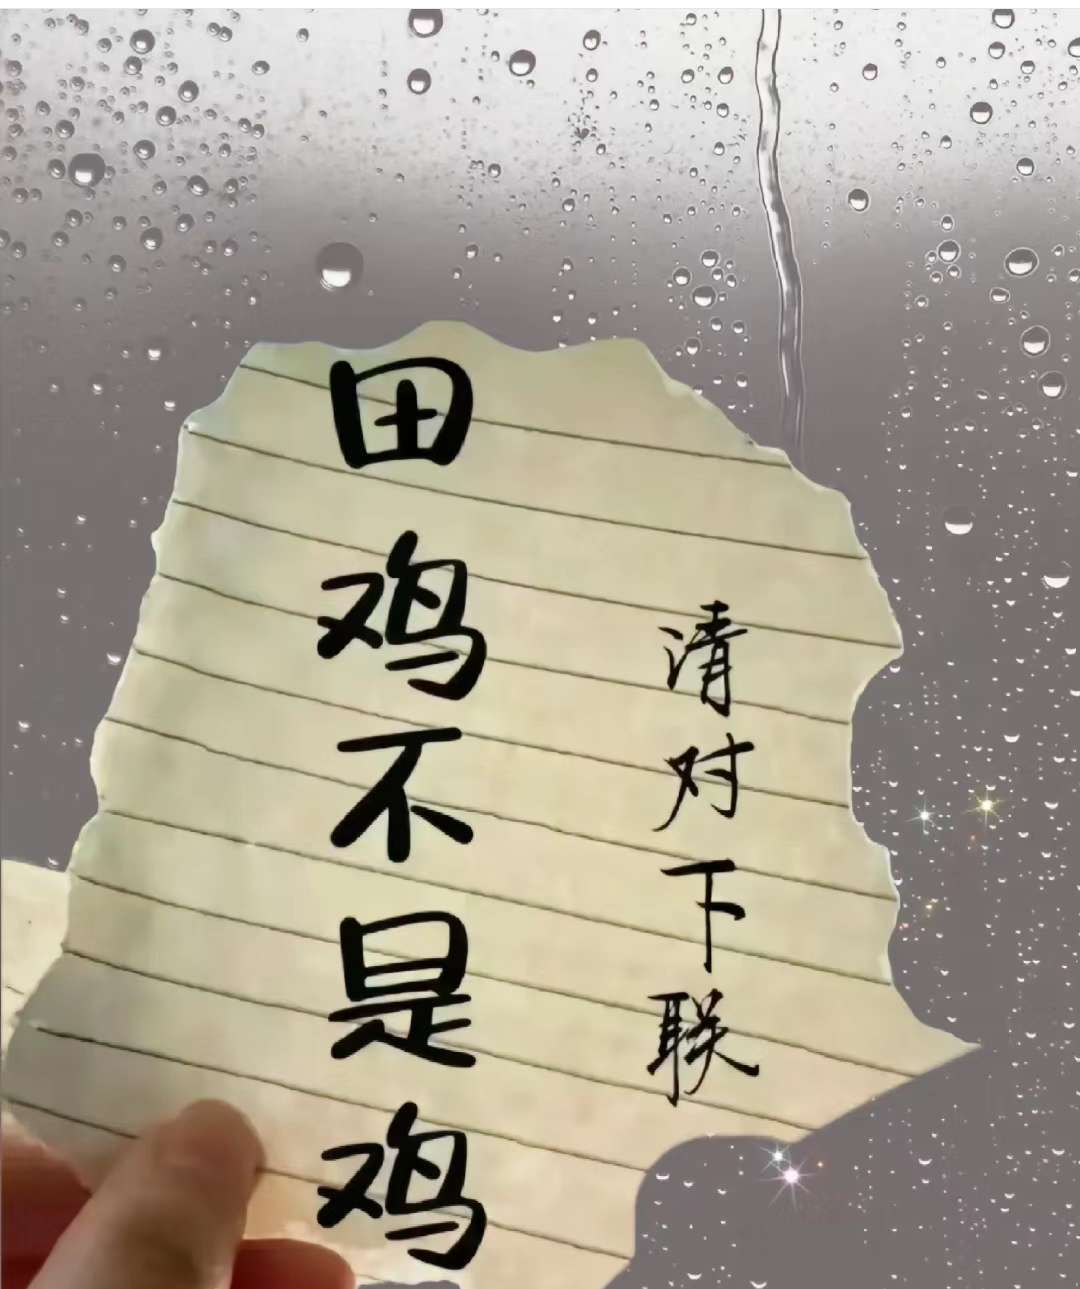 田鸡不是鸡
清对下联